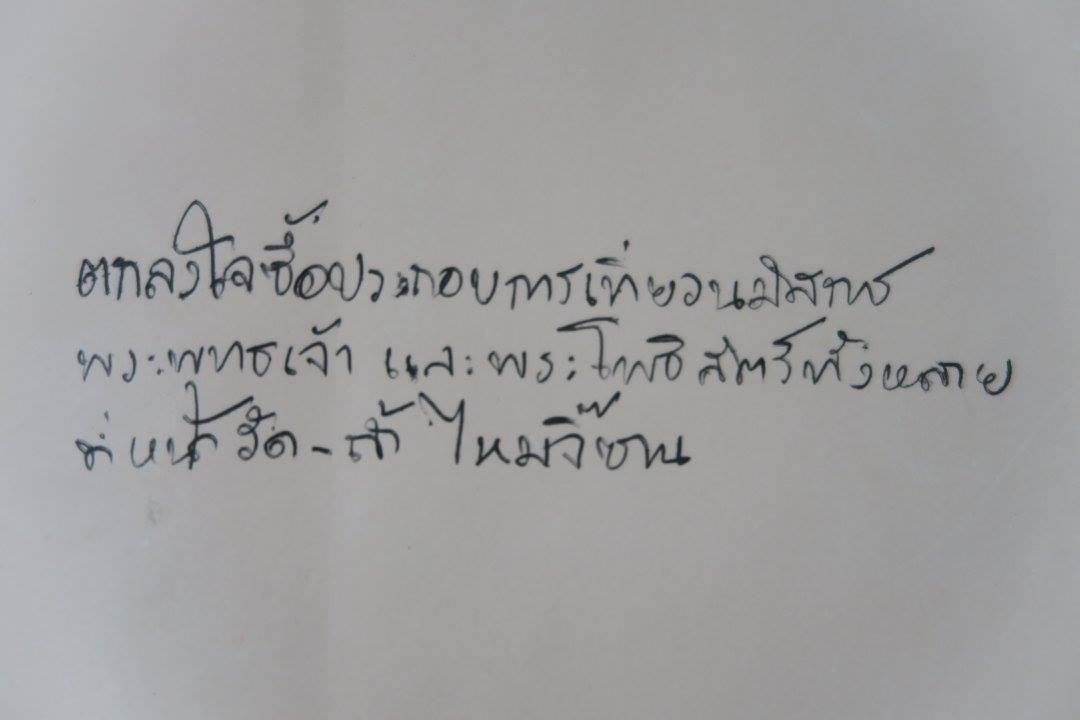 ตกลงใจซื้อประกอบการเที่ยวนมัสการ
พระพุทธเจ้า และพระโพธิสัตว์ทั้งหลาย
ที่หน้าวัด-ถ้ำ ไหมจี๊ซาน